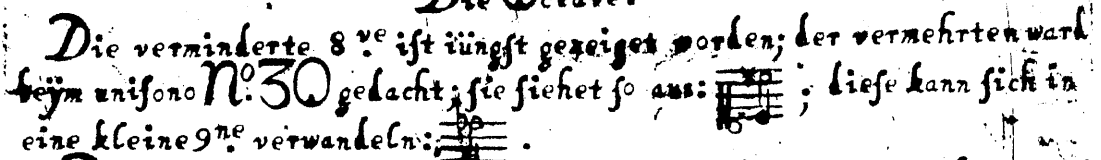 Die Octave.
Die verminderte 8ve. ist iüngst gezeiget worden; der vermehrten ward
beÿm unisono No. 30 gedacht; sie siehet so aus: ; diese kann sich in
eine kleine 9ne. verwandeln: .